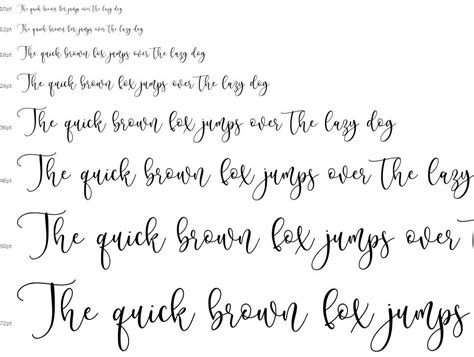 10pt The quick brown fox jumps over the lazy dog
12pt The quick brown fox jumps over the lazy dog
18pt The quick brown fox jumps over the lazy dog
24pt The quick brown fox jumps over the lazy dog
36pt The quick brown fox jumps over the lazy dog
48pt The quick brown fox jumps over the lazy
60pt The quick brown fox jumps over t
72pt The quick brown fox jumps